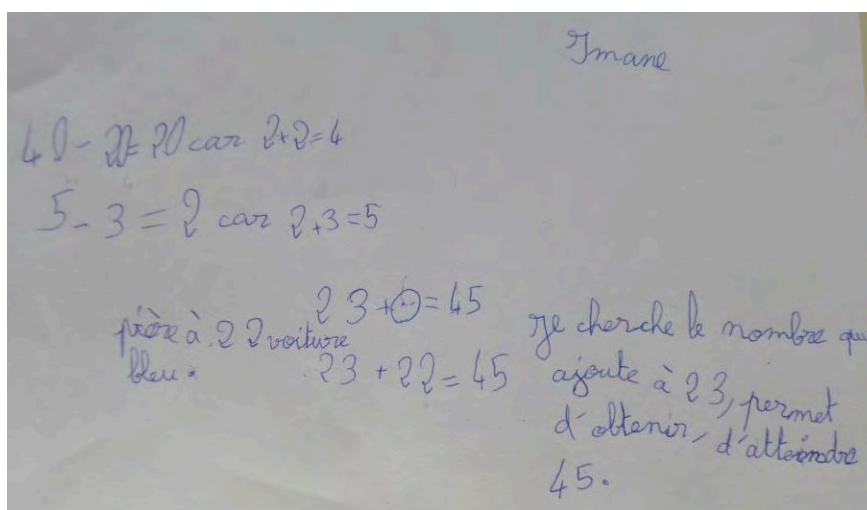 Imane
40 - 20 = 20 car 2+2=4
5 - 3 = 2 car 2+3=5
23 + = 45
pière à 22 voiture
bleu.
23 + 22 = 45
Je cherche le nombre qu
ajoute à 23, permet
d'obtenir, d'atteindre
45.